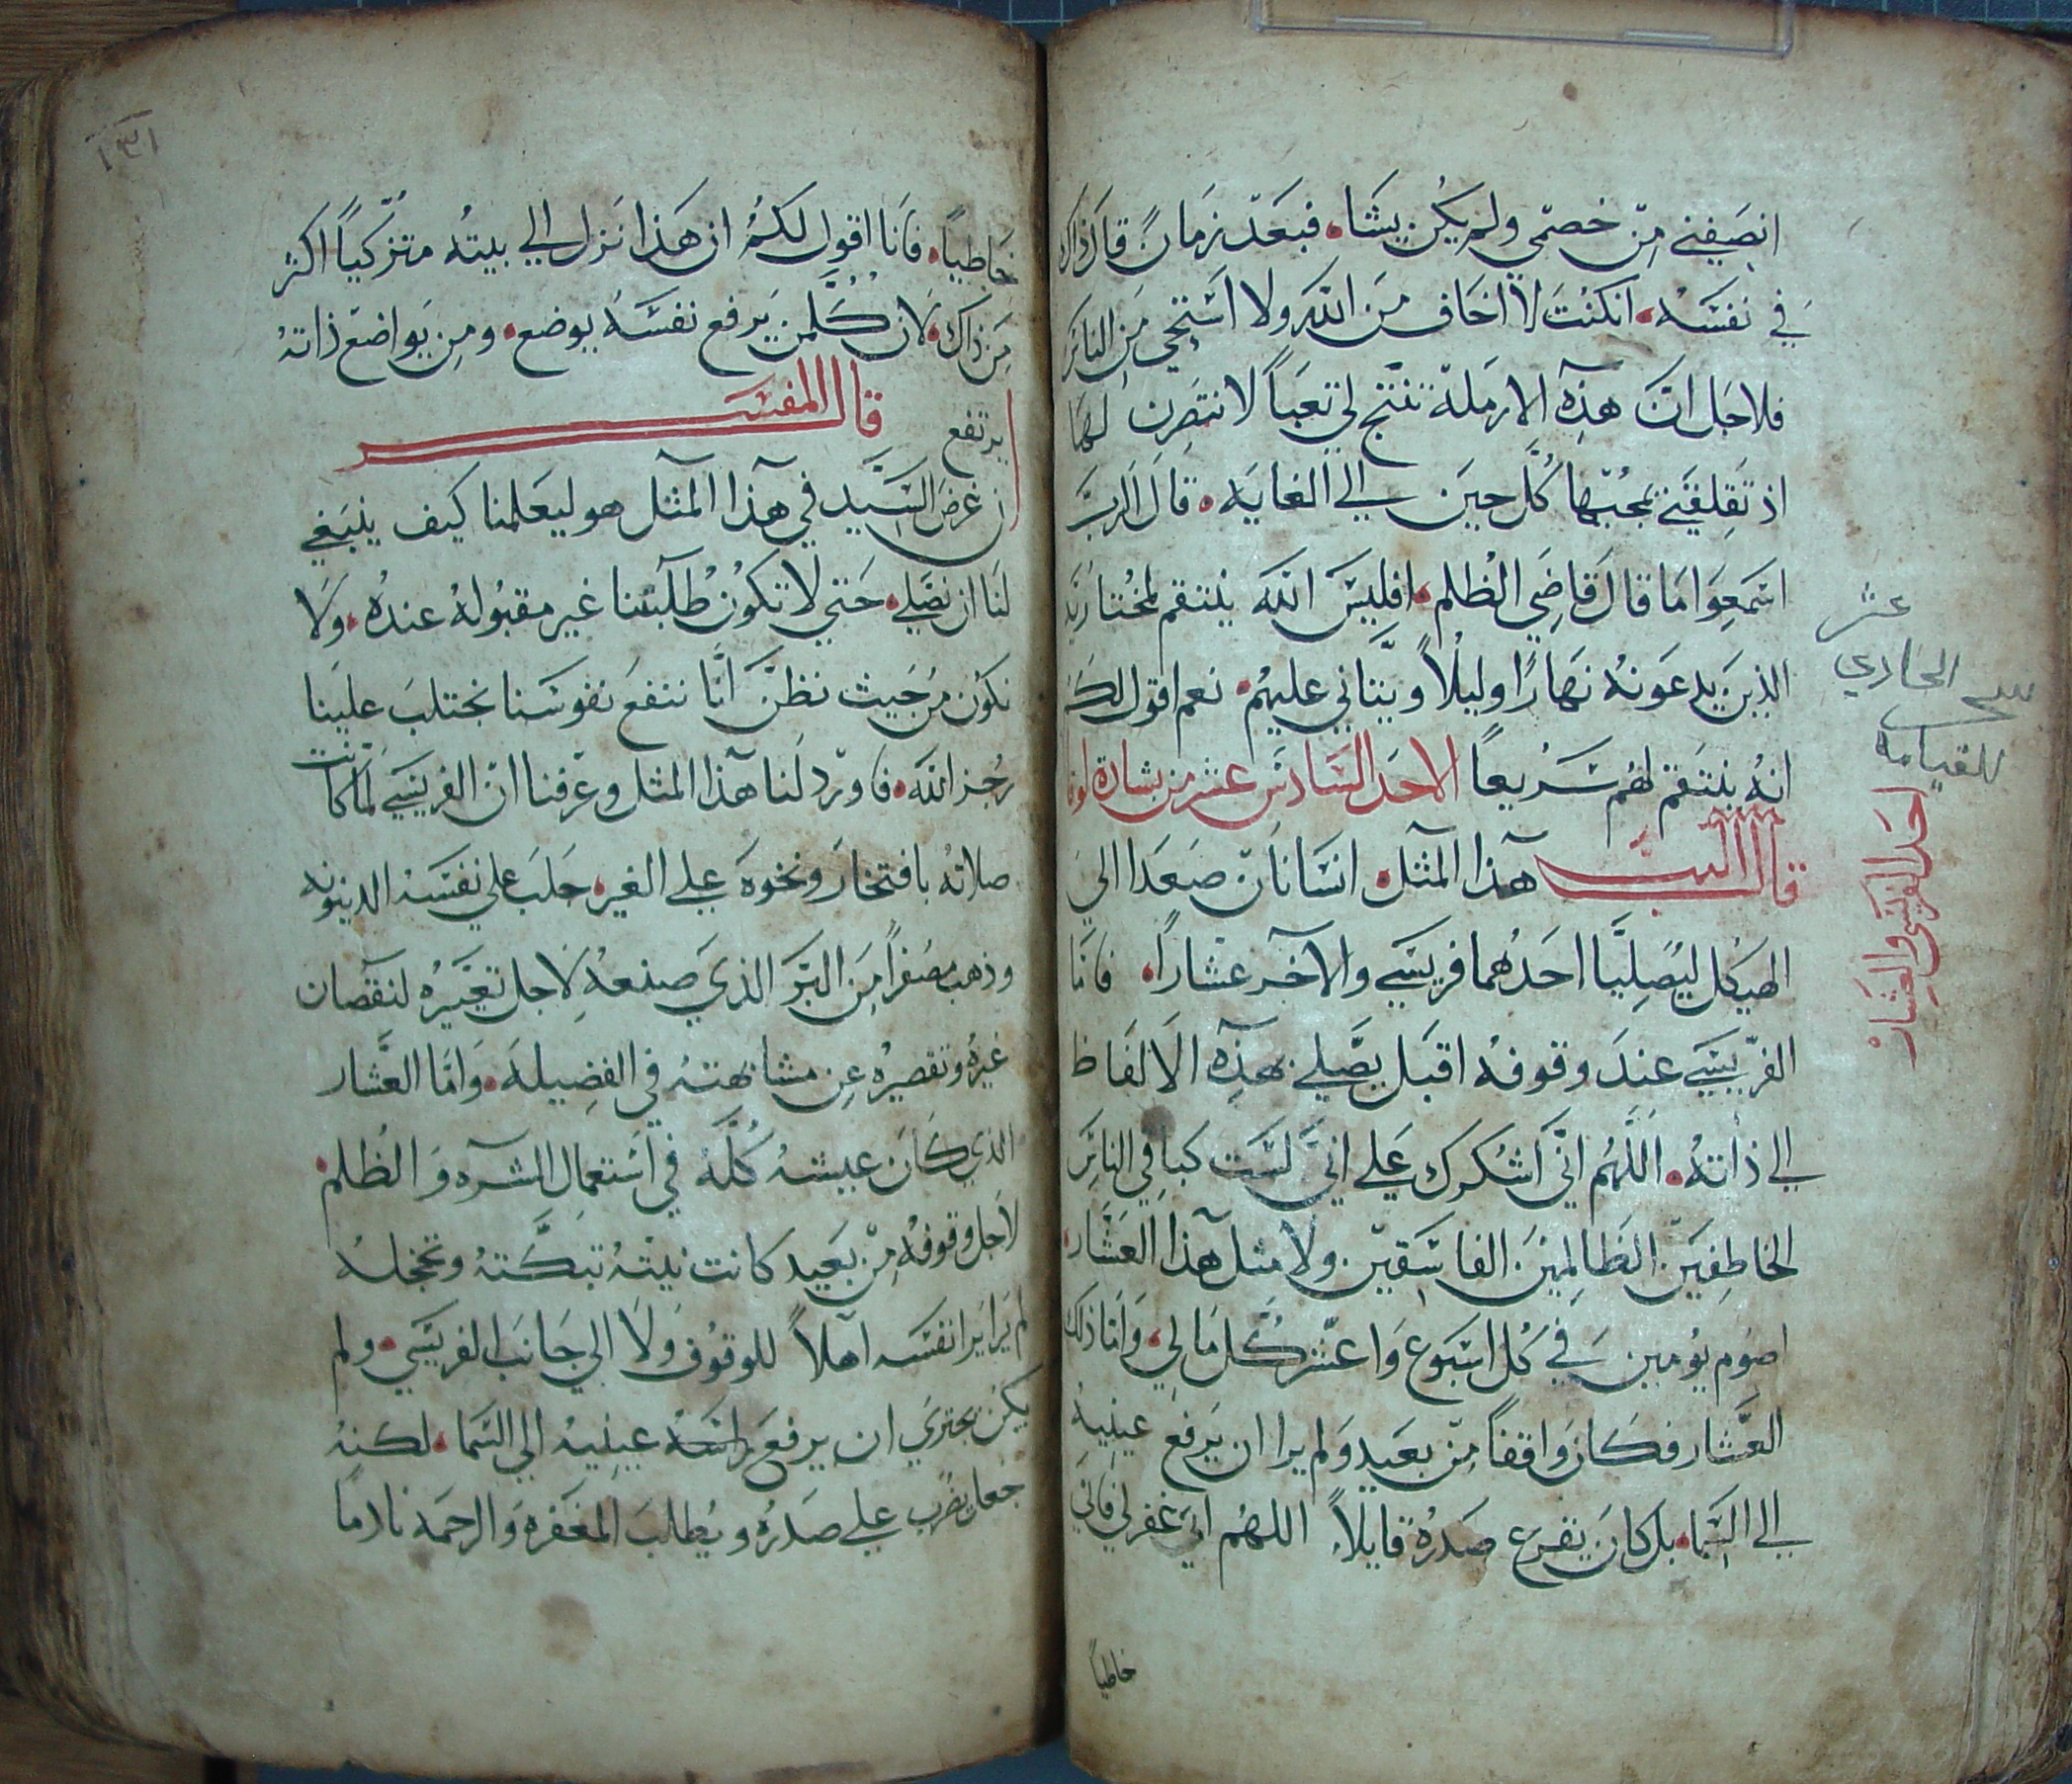 انصفني من خصمي ولم يكن يشاء فبعد زمان قال ذاك
في نفسه انكنت لا اخاف من الله ولا استحي من الناس
فلاجل ان هذه الارملة تنتج لي تعباً لانتصرن لها
اذ تقلقني بمجيها كل حين الي الغايه قال الرب
اسمعوا ما قال قاضي الظلم افليس الله ينتقم لمختاريه
الذين يدعونه نهاراً وليلاً ويتاني عليهم نعم اقول لكم
انه ينتقم لهم سريعاً الاحد السادس عشر من بشارة لوقا
قال الرب هذا المثل انسانان صعدا الي
الهيكل ليصليا احدهما فريسي والاخر عشاراً فاما
الفريسي عند وقوفه اقبل يصلي بهذه الالفاظ
الي ذاته اللهم اني اشكرك علي اني لست كباقي الناس
الخاطفين الظالمين الفاسقين ولا مثل هذا العشار
اصوم يومين في كل اسبوع واعشر كل مالي واما ذلك
العشار فكان واقفاً من بعيد ولم يرا ان يرفع عينيه
الي السما بل كان يقرع صدره قايلاً اللهم اغفر لي فاني
خاطياً
عشر
الحادي
للقيامه
احد الفريسي والعشار
١٣١
خاطياً فانا اقول لكم ان هذا نزل الي بيته متزكياً اكثر
من ذاك لان كلمن يرفع نفسه يوضع ومن يواضع ذاته
يرتفع قال المفسر
ان غرض السيد في هذا المثل هو ليعلمنا كيف ينبغي
لنا ان نصلي حتي لا تكون طلبتنا غير مقبوله عنده ولا
نكون من حيث نظن انا ننفع نفوسنا نجتلب علينا
رجز الله فاورد لنا هذا المثل وعرفنا ان الفريسي لما كانت
صلاته بافتخار ونخوه علي الغير جلب علي نفسه الدينونه
وذهب مصفراً من البر الذي صنعه لاجل تعيره لنقصان
غيره وتقصيره عن مشابهته في الفضيله واما العشار
الذي كان عيشه كله في استعمال الشره والظلم
لاجل وقوفه من بعيد كانت نيته تبكته وتخجله
لم يرا نفسه اهلاً للوقوف ولا الي جانب الفريسي ولم
يكن يجتري ان يرفع عينيه الي السما لكنه
جعل يضرب علي صدره ويطلب المغفره والرحمه نادماً